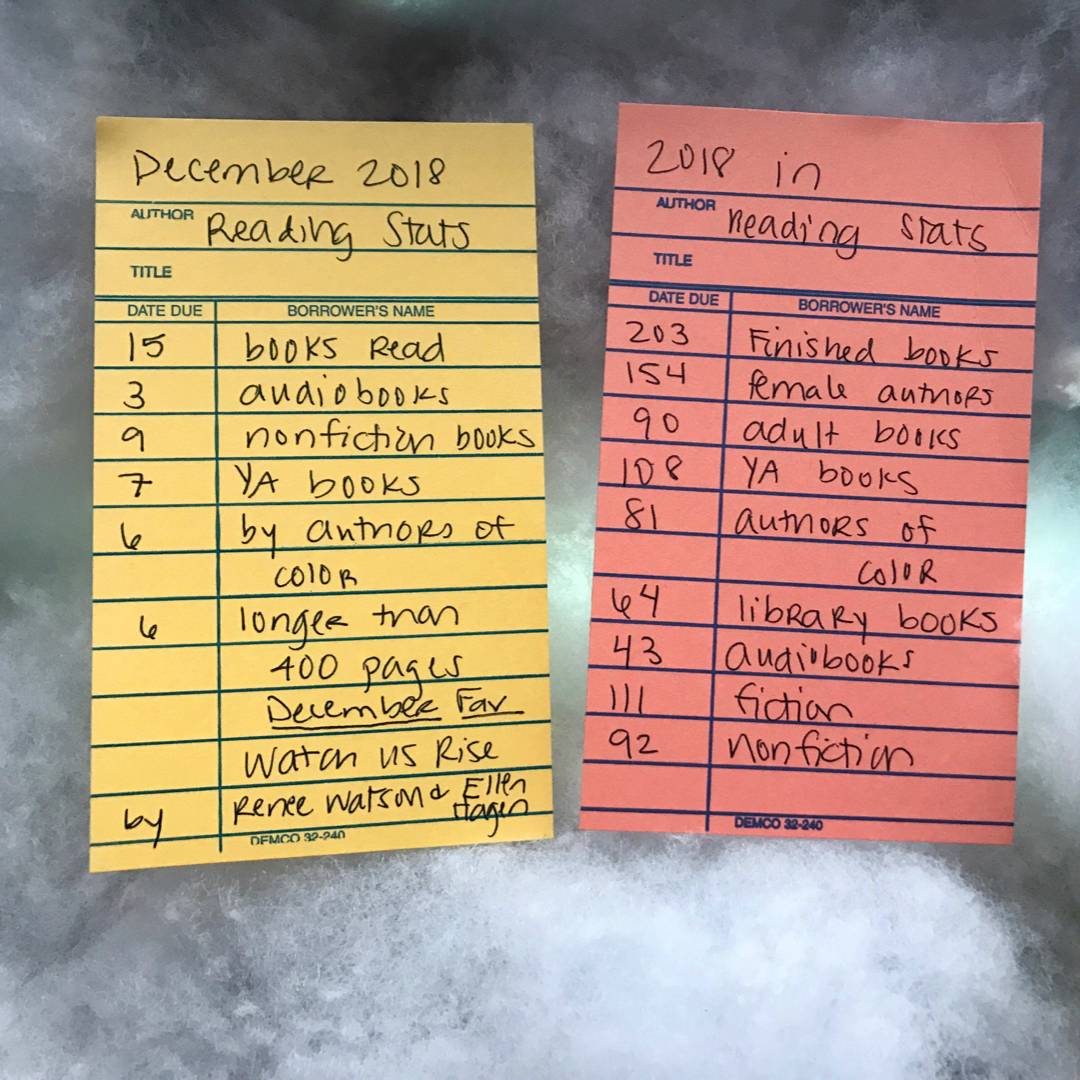 December 2018
AUTHOR Reading Stats
TITLE
DATE DUE BORROWER'S NAME
15 books Read
3 audiobooks
9 nonfiction books
7 YA books
6 by authors of
color
6 longer than
400 pages
December Fav
Watch us Rise
by Renee Watson & Ellen Hagen
DEMCO 32-240
2018 in
AUTHOR Reading Stats
TITLE
DATE DUE BORROWER'S NAME
203 Finished books
154 female authors
90 adult books
108 YA books
81 authors of
color
64 library books
43 audiobooks
111 fiction
92 nonfiction
DEMCO 32-240